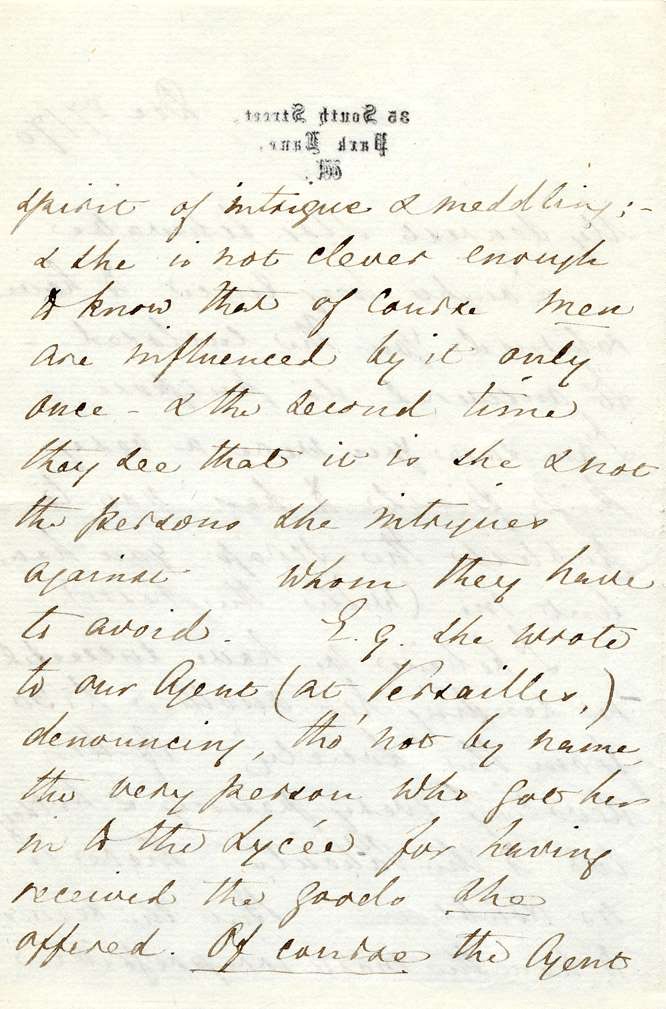 35 South Street,
Park Lane,
W.
spirit of intrigue & meddling:-
& she is not clever enough
to know that of course men
are influenced by it only
once - & the second time
they see that it is she & not
the persons she intrigues
against whom they have
to avoid. E.g. she wrote
to our Agent (at Versailles,)
denouncing, tho' not by name,
the very person who got her
in to the Lycée for having
received the goods she
offered. Of course the Agent